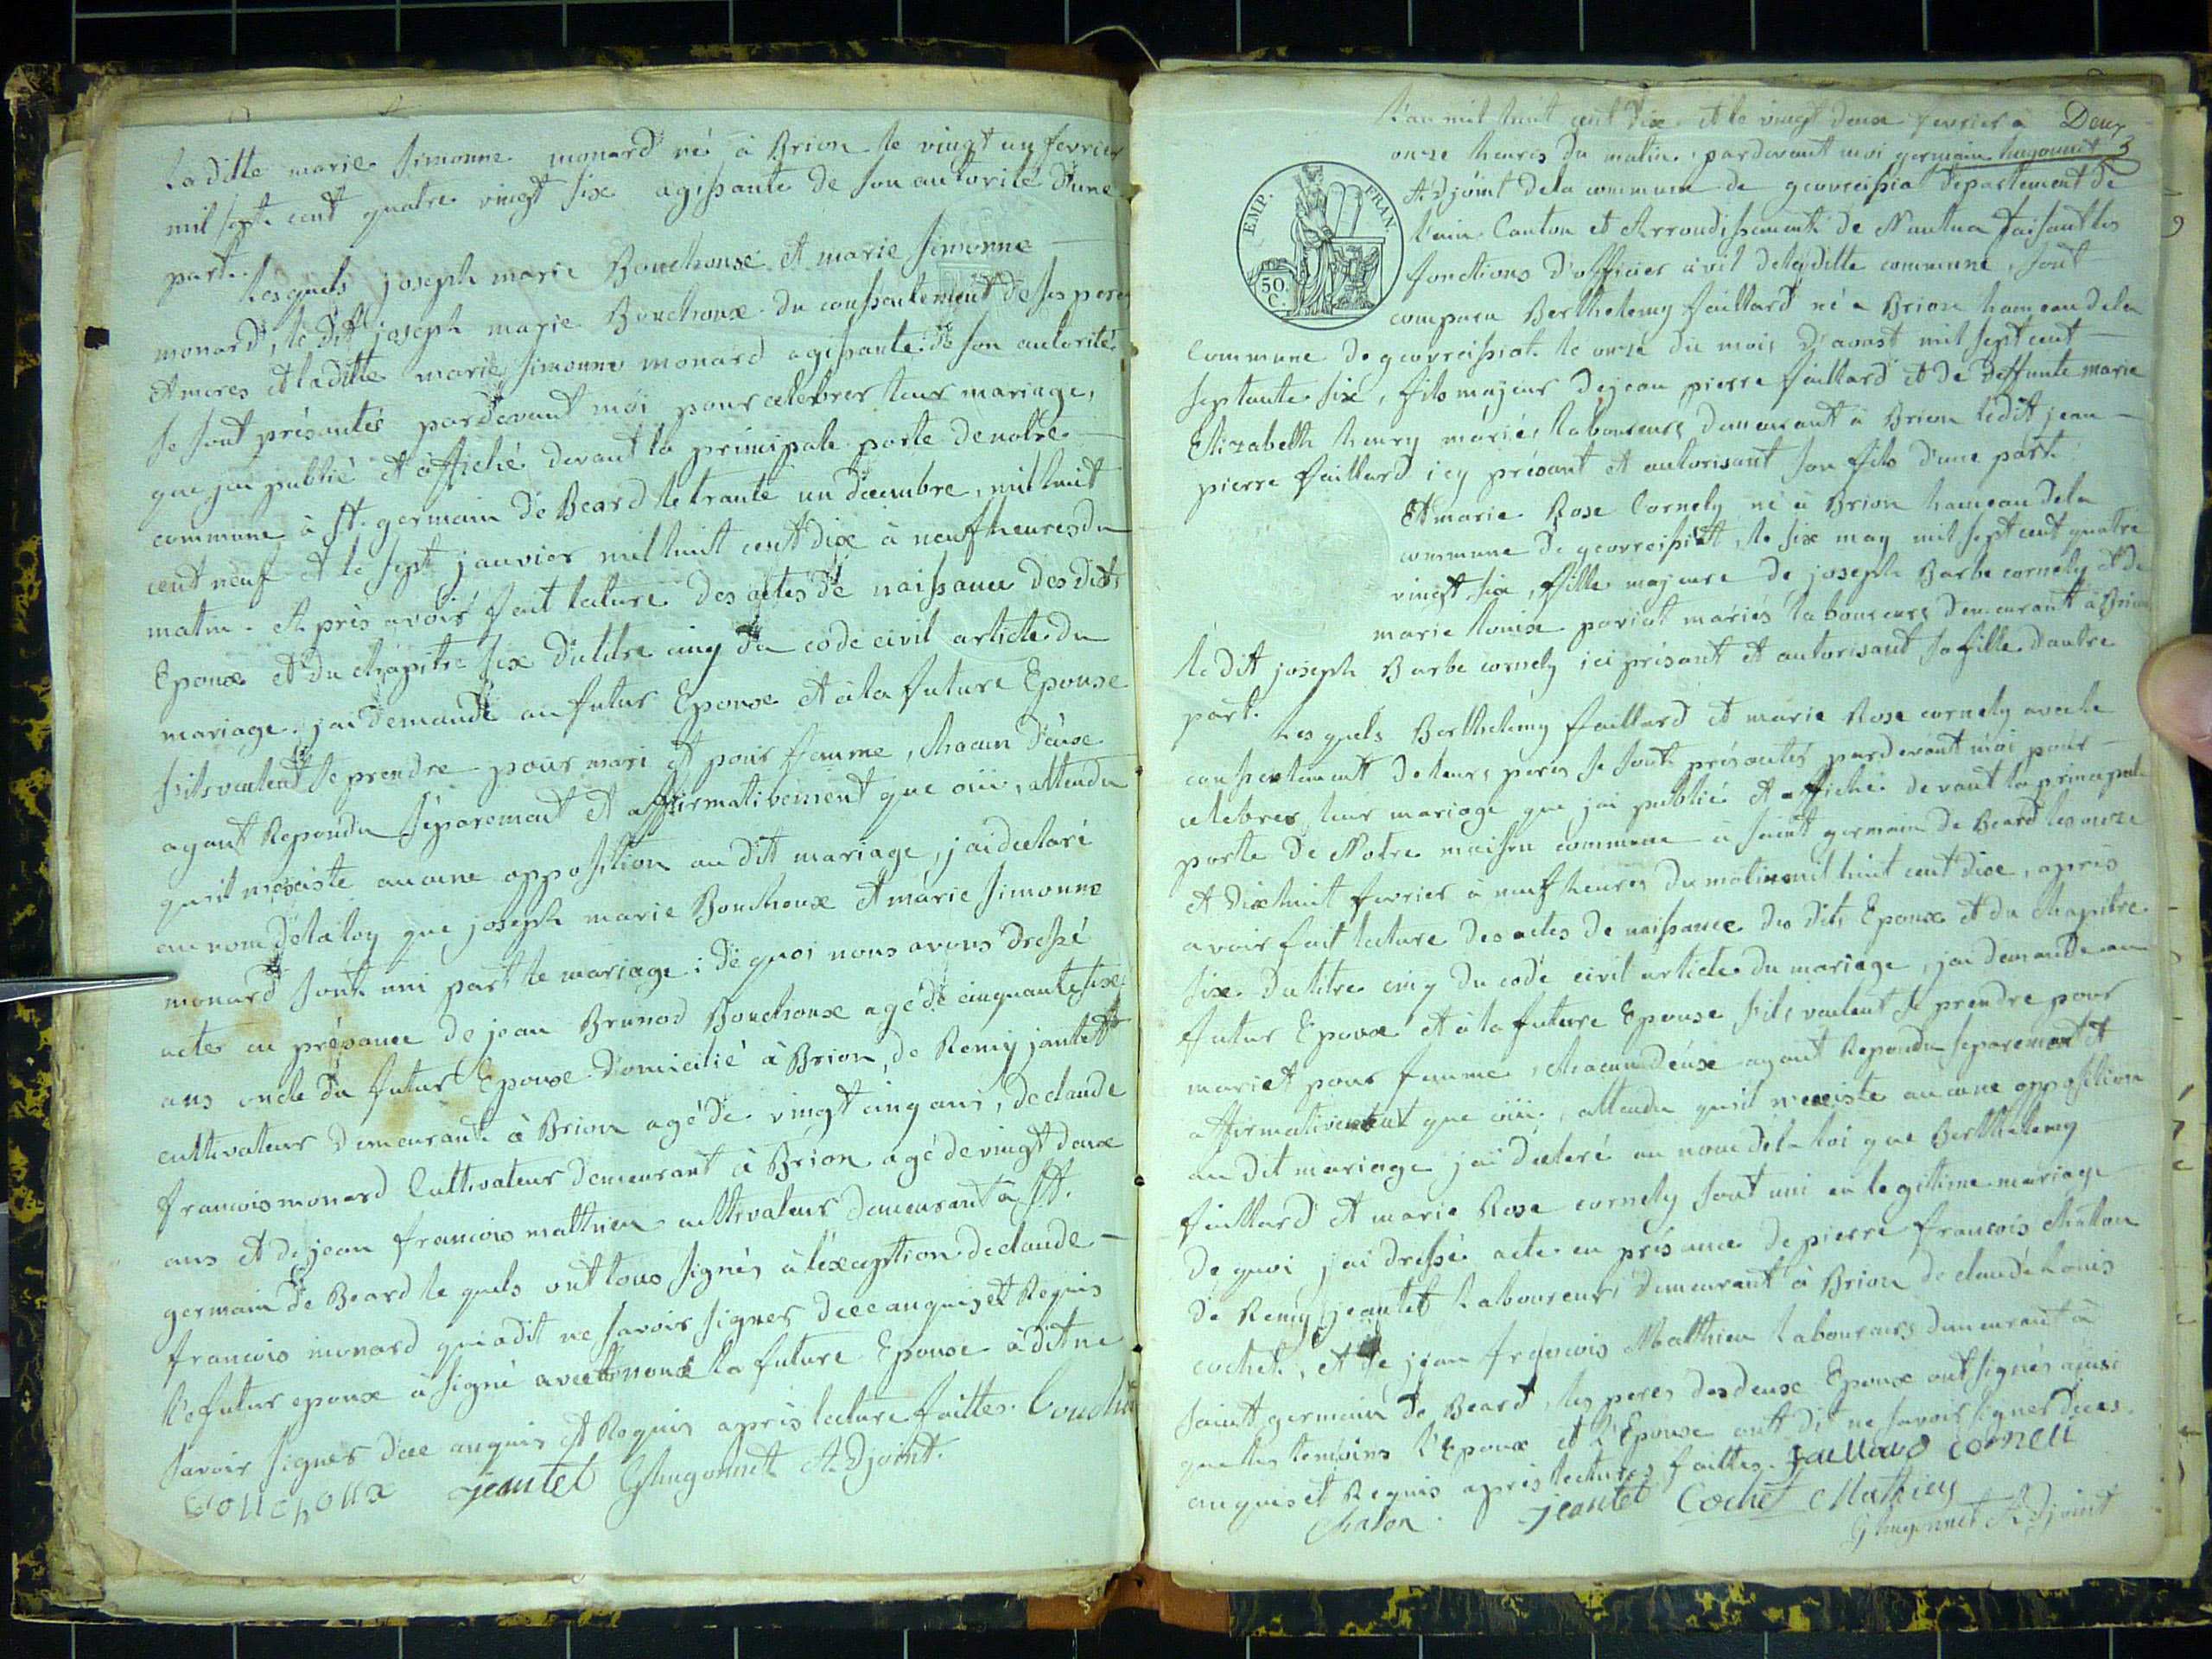 La ditte marie Simonne monard né à Brion le vingt un fevrier
mil sept cent quatre vingt six agissante de son autorité d'une
part.
Les quels joseph marie Bouchoux et marie Simonne
monard, le dit joseph marie Bouchoux du consentement de ses peres
et meres et la ditte marie Simonne monard agissante de son autorité
se sont présantés pardevant moi pour celebrer leur mariage,
que jai publié et affiché devant la principale porte de notre
commune à St. germain de Beard le trante un decembre, mil huit
cent neuf et le sept janvier mil huit cent dix à neuf heures du
matin. Après avoir fait lecture des actes de naissance des dits
Epoux et du chapitre six du titre cinq du code civil article du
mariage. jai demandé au futur Epoux et à la future Epouse
sils veulent se prendre pour mari et pour famme, chacun d'eux
ayant Repondu séparement et affirmativement que oui, attendu
quil nexiste aucune opposition au dit mariage, jai declaré
au nom de la loy que joseph marie Bouchoux et marie Simonne
monard sont uni part le mariage; de quoi nous avons dressé
acte en présance de jean Brunod Bouchoux agé de cinquante six
ans oncle du futur Epoux domicilié à Brion, de Remy jantet
cultivateur demeurant à Brion agé de vingt cinq ans, de claude
francois monard Cultivateur demeurant à Brion agé de vingt deux
ans et de jean francois matthieu cultivateur demeurant à St.
germain de Beard le quels ont tous signés à l'exception de claude
francois monard qui a dit ne savoir signer de ce anquis et Requis
le futur epoux à signé avec nous la future Epouse à dit ne
savoir signer de ce anquis et Requis apris lecture faitte. Bouchoux
Bouchoux jeantet GHugonnet Adjoint.
Deux
L'an mil huit cent dix et le vingt deux fevrier a
onze heures du matin. pardevant moi germain hugonnet
Adjoint de la commune de geovreissiat departement de
l'ain Canton et Arrondissement de Nantua faisant les
fonctions d'officier civil de la ditte commune, sont
EMP. FRAN.
50. C.
comparu Berthelemy faillard né a Brion hameau de la
Commune de geovreissiat le onze du mois d'aoust mil sept cent
septante six, fils majeur de jean pierre faillard et de deffunte marie
Elizabeth henry mariés laboureurs demeurant à Brion ledit jean
pierre faillard icy présant et autorisant son fils d'une part.
Et marie Rose Cornely né à Brion hameau de la
commune de geovreissiat, le six may mil sept cent quatre
vingt six, fille majeure de joseph Barbe cornely et de
marie louise pariat mariés laboureurs demeurant à Brion
le dit joseph Barbe cornely ici présant et autorisant sa fille dautre
part.
Les quels Berthelemy faillard et marie Rose cornely avec le
consentement de leurs peres se sont présantés pardevant moi pour
celebrer leur mariage que jai publié et affiché devant la principale
porte de Notre maison commune a saint germain de Beard les onze
et dixhuit fevrier à neuf heures du matin mil huit cent dix, après
avoir fait lecture des actes de naissance des dits Epoux et du chapitre
six du titre cinq du code civil article du mariage, jai demandé au
futur Epoux et à la future Epouse sils veulent se prendre pour
mari et pour famme, chacun deux ayant Repondu séparement et
affirmativement que oui, attendu quil nexiste aucune opposition
au dit mariage jai declaré au nom de la loi que Berthelemy
faillard et marie Rose cornely sont uni en legitime mariage
de quoi jai dressé acte en présance de pierre francois chatton
de Remy jeantet Laboureurs demeurant à Brion de claude louis
cochet, et de jean francois Matthieu Laboureurs demeurant à
saint germain de Beard, les peres des deux Epoux ont signés ainsi
que les temoins l'Epoux et l'Epouse ont dit ne savoir signer de ce
anquis et Requis apris lecture faitte. faillard corneli
chaton jeantet Cochet Mathieu
GHugonnet Adjoint